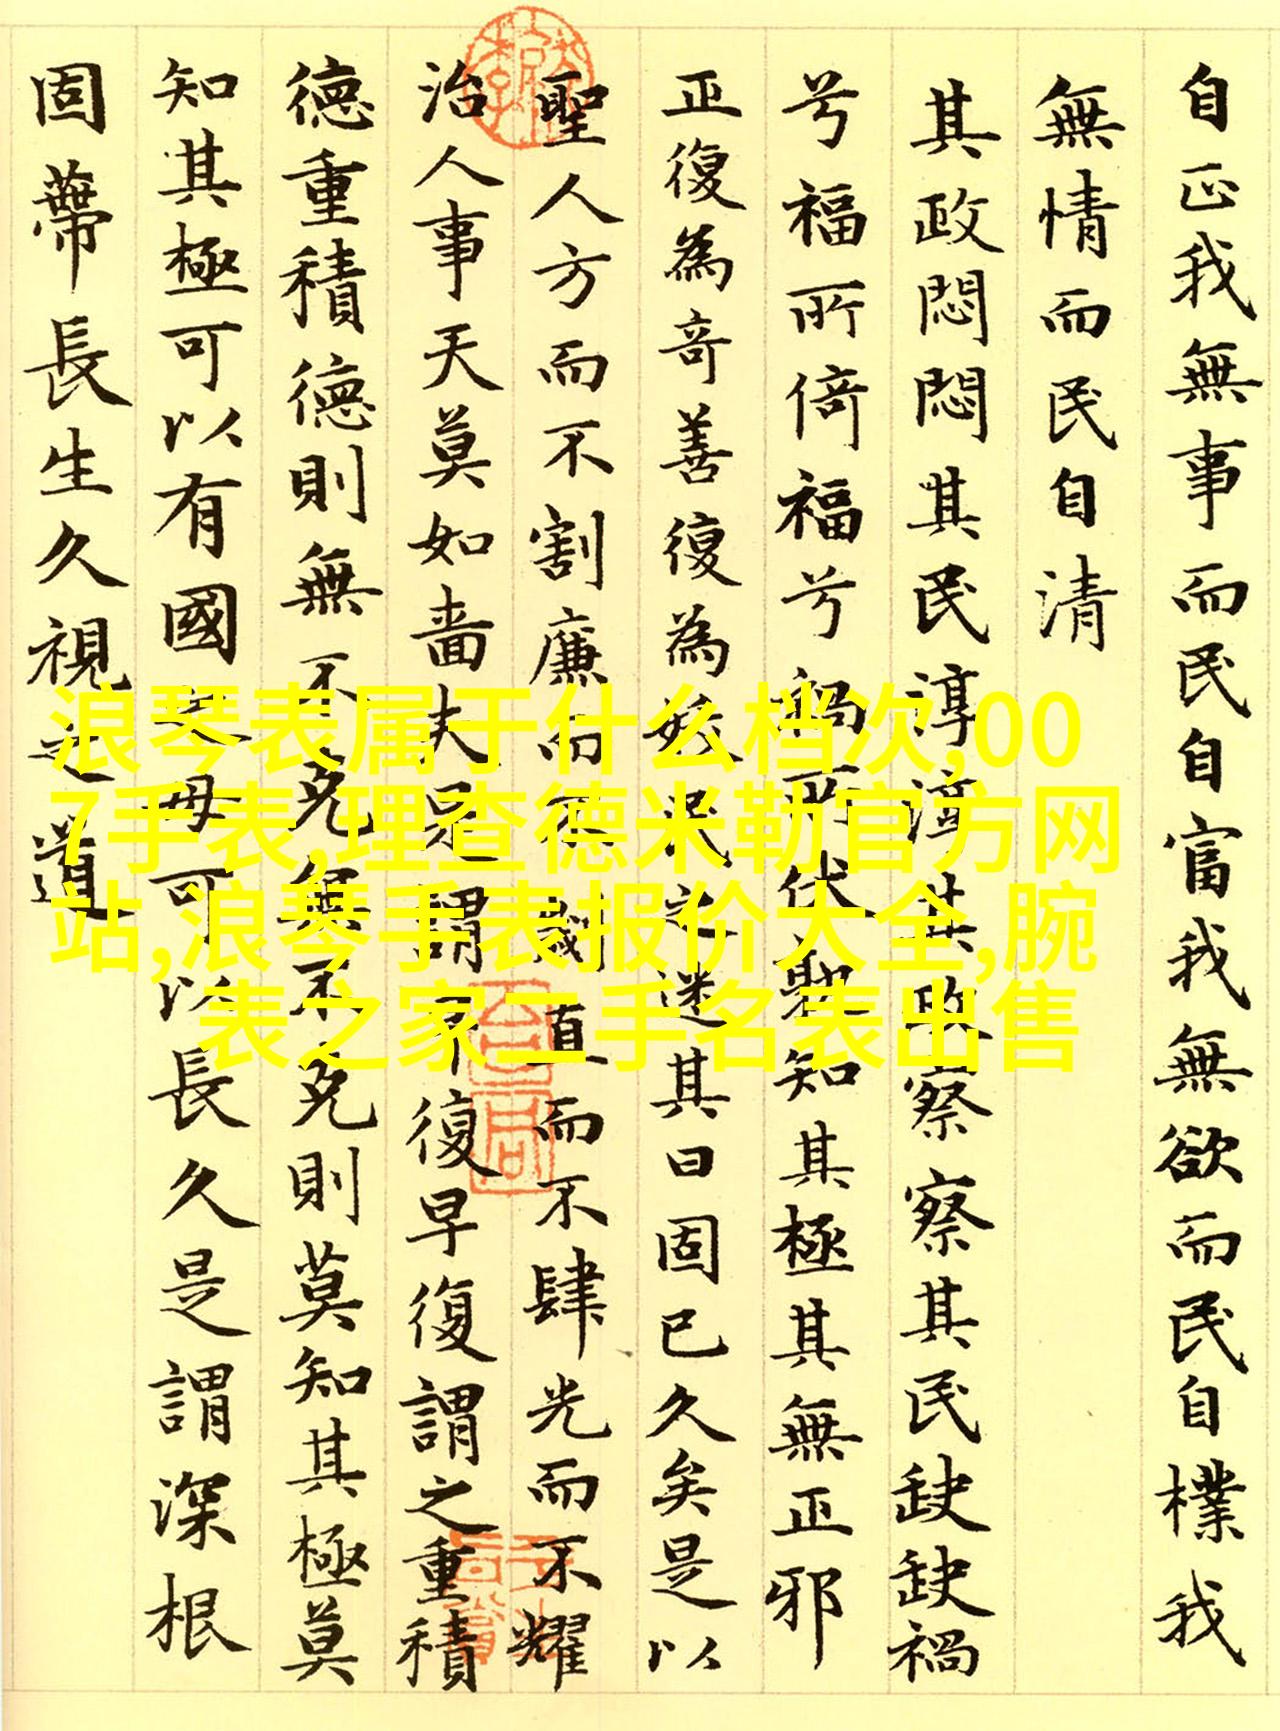 自正我無事而民自富我無欲而民自樸我
無情而民自清
其政悶悶其民淳淳其政察察其民缺缺禍
兮福所倚福兮禍所伏孰知其極其無正邪
正復為奇善復為妖民之迷其日固已久矣是以
聖人方而不割廉而不劌直而不肆光而不耀
治人事天莫如嗇夫是謂早復早復謂之重積
德重積德則無不克無不克則莫知其極莫
知其極可以有國有國之母可以長久是謂深根
固蔕長生久視之道
浪琴表属于什么档次,00
7手表,理查德米勒官方网
站,浪琴手表报价大全,腕
表之家二手名表出售